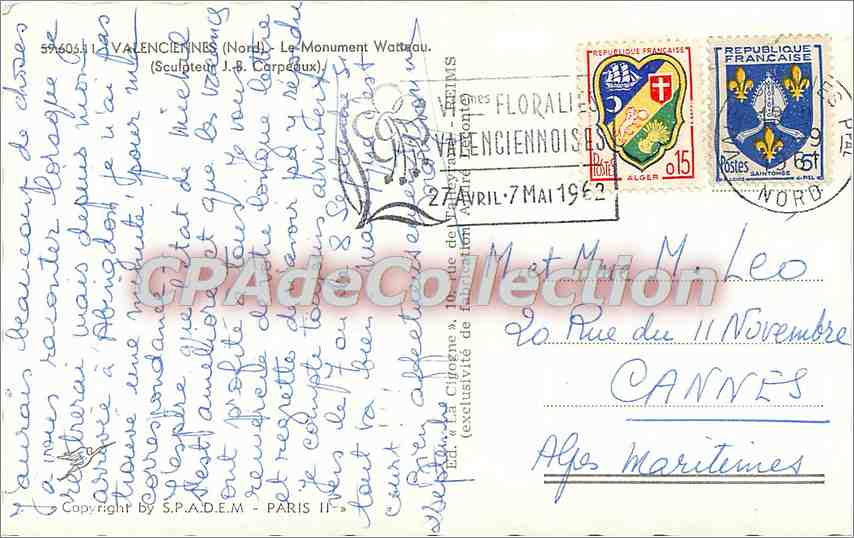 59.606.11 VALENCIENNES (Nord) - Le Monument Watteau.
(Sculpteur J.-B. Carpeaux).
VI èmes FLORALIES
VALENCIENNOISES
27 AVRIL - 7 MAI 1962
REPUBLIQUE FRANÇAISE
POSTES
ALGER
0,15
REPUBLIQUE
FRANÇAISE
Postes
5F
SAINTONGE
NORD
Pal
M. et Mme M. Léo
20 Rue du 11 Novembre
CANNES
Alpes Maritimes
Ed. « La Cigogne », 10, rue de Talleyrand, REIMS
(exclusivité de fabrication André Leconte)
J'aurais beaucoup de choses
à vous raconter lorsque je
rentrerai mais depuis mon
arrivée à Abingdon je n'ai pas
trouvé une minute pour ma
correspondance !
J'espère que l'état de Michel
s'est amélioré et que les vacances
ont profité à tous. Je vous
remercie de votre longue lettre
et regrette de n'avoir pas
je compte toujours arriver
vers le 7 ou 8 Septembre si
tout va bien.
court ! Bien affectueusement
septembre
« Copyright by S.P.A.D.E.M - PARIS II »
CPAdeCollection